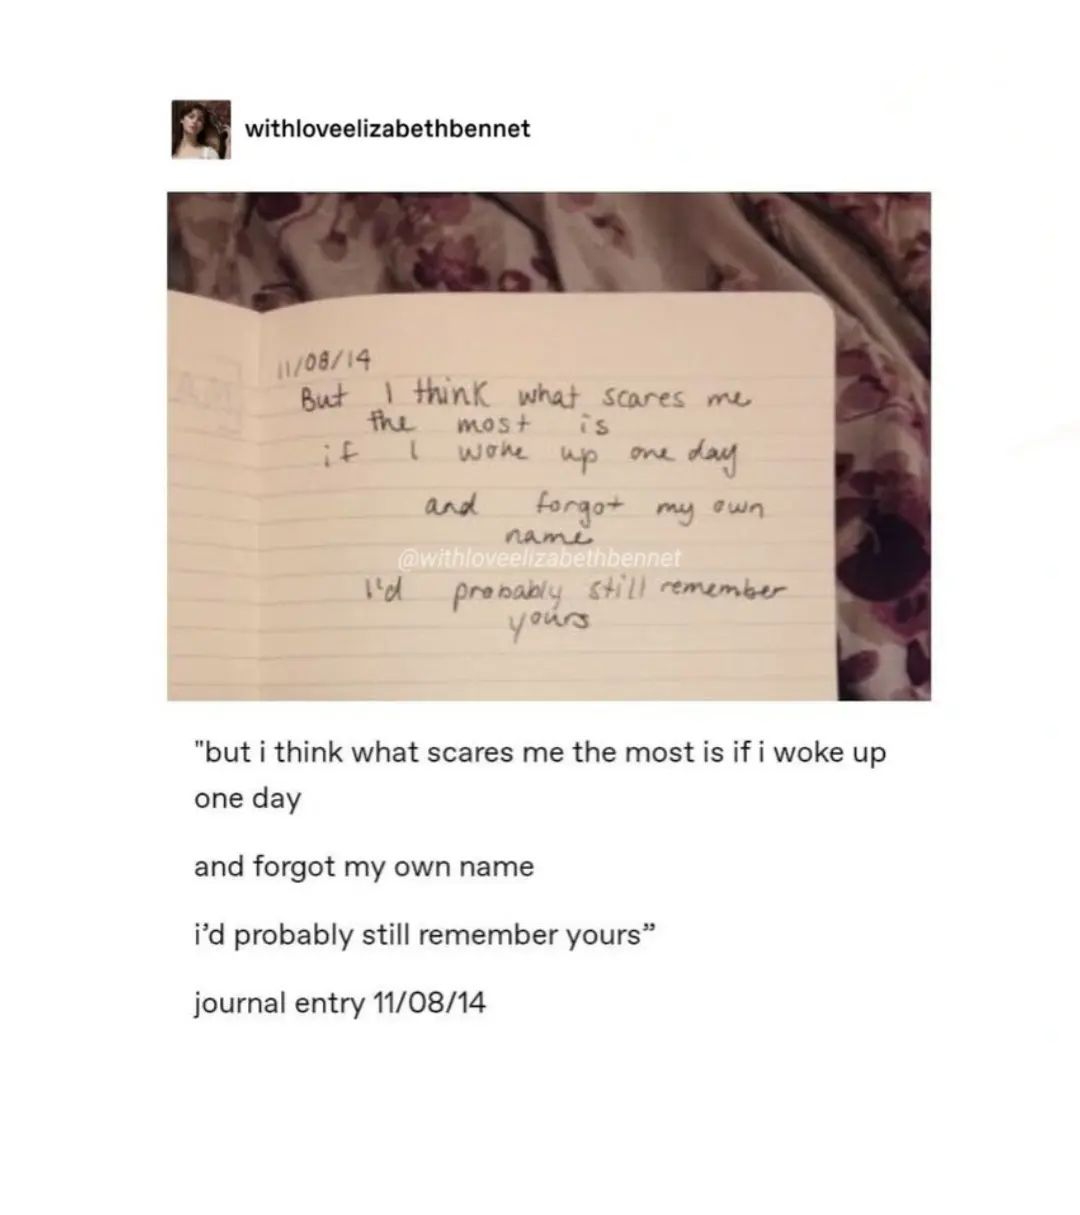 withloveelizabethbennet
11/08/14
But I think what scares me
the most is
if I woke up one day
and forgot my own
name
@withloveelizabethbennet
I'd probably still remember
yours
"but i think what scares me the most is if i woke up
one day
and forgot my own name
i’d probably still remember yours”
journal entry 11/08/14